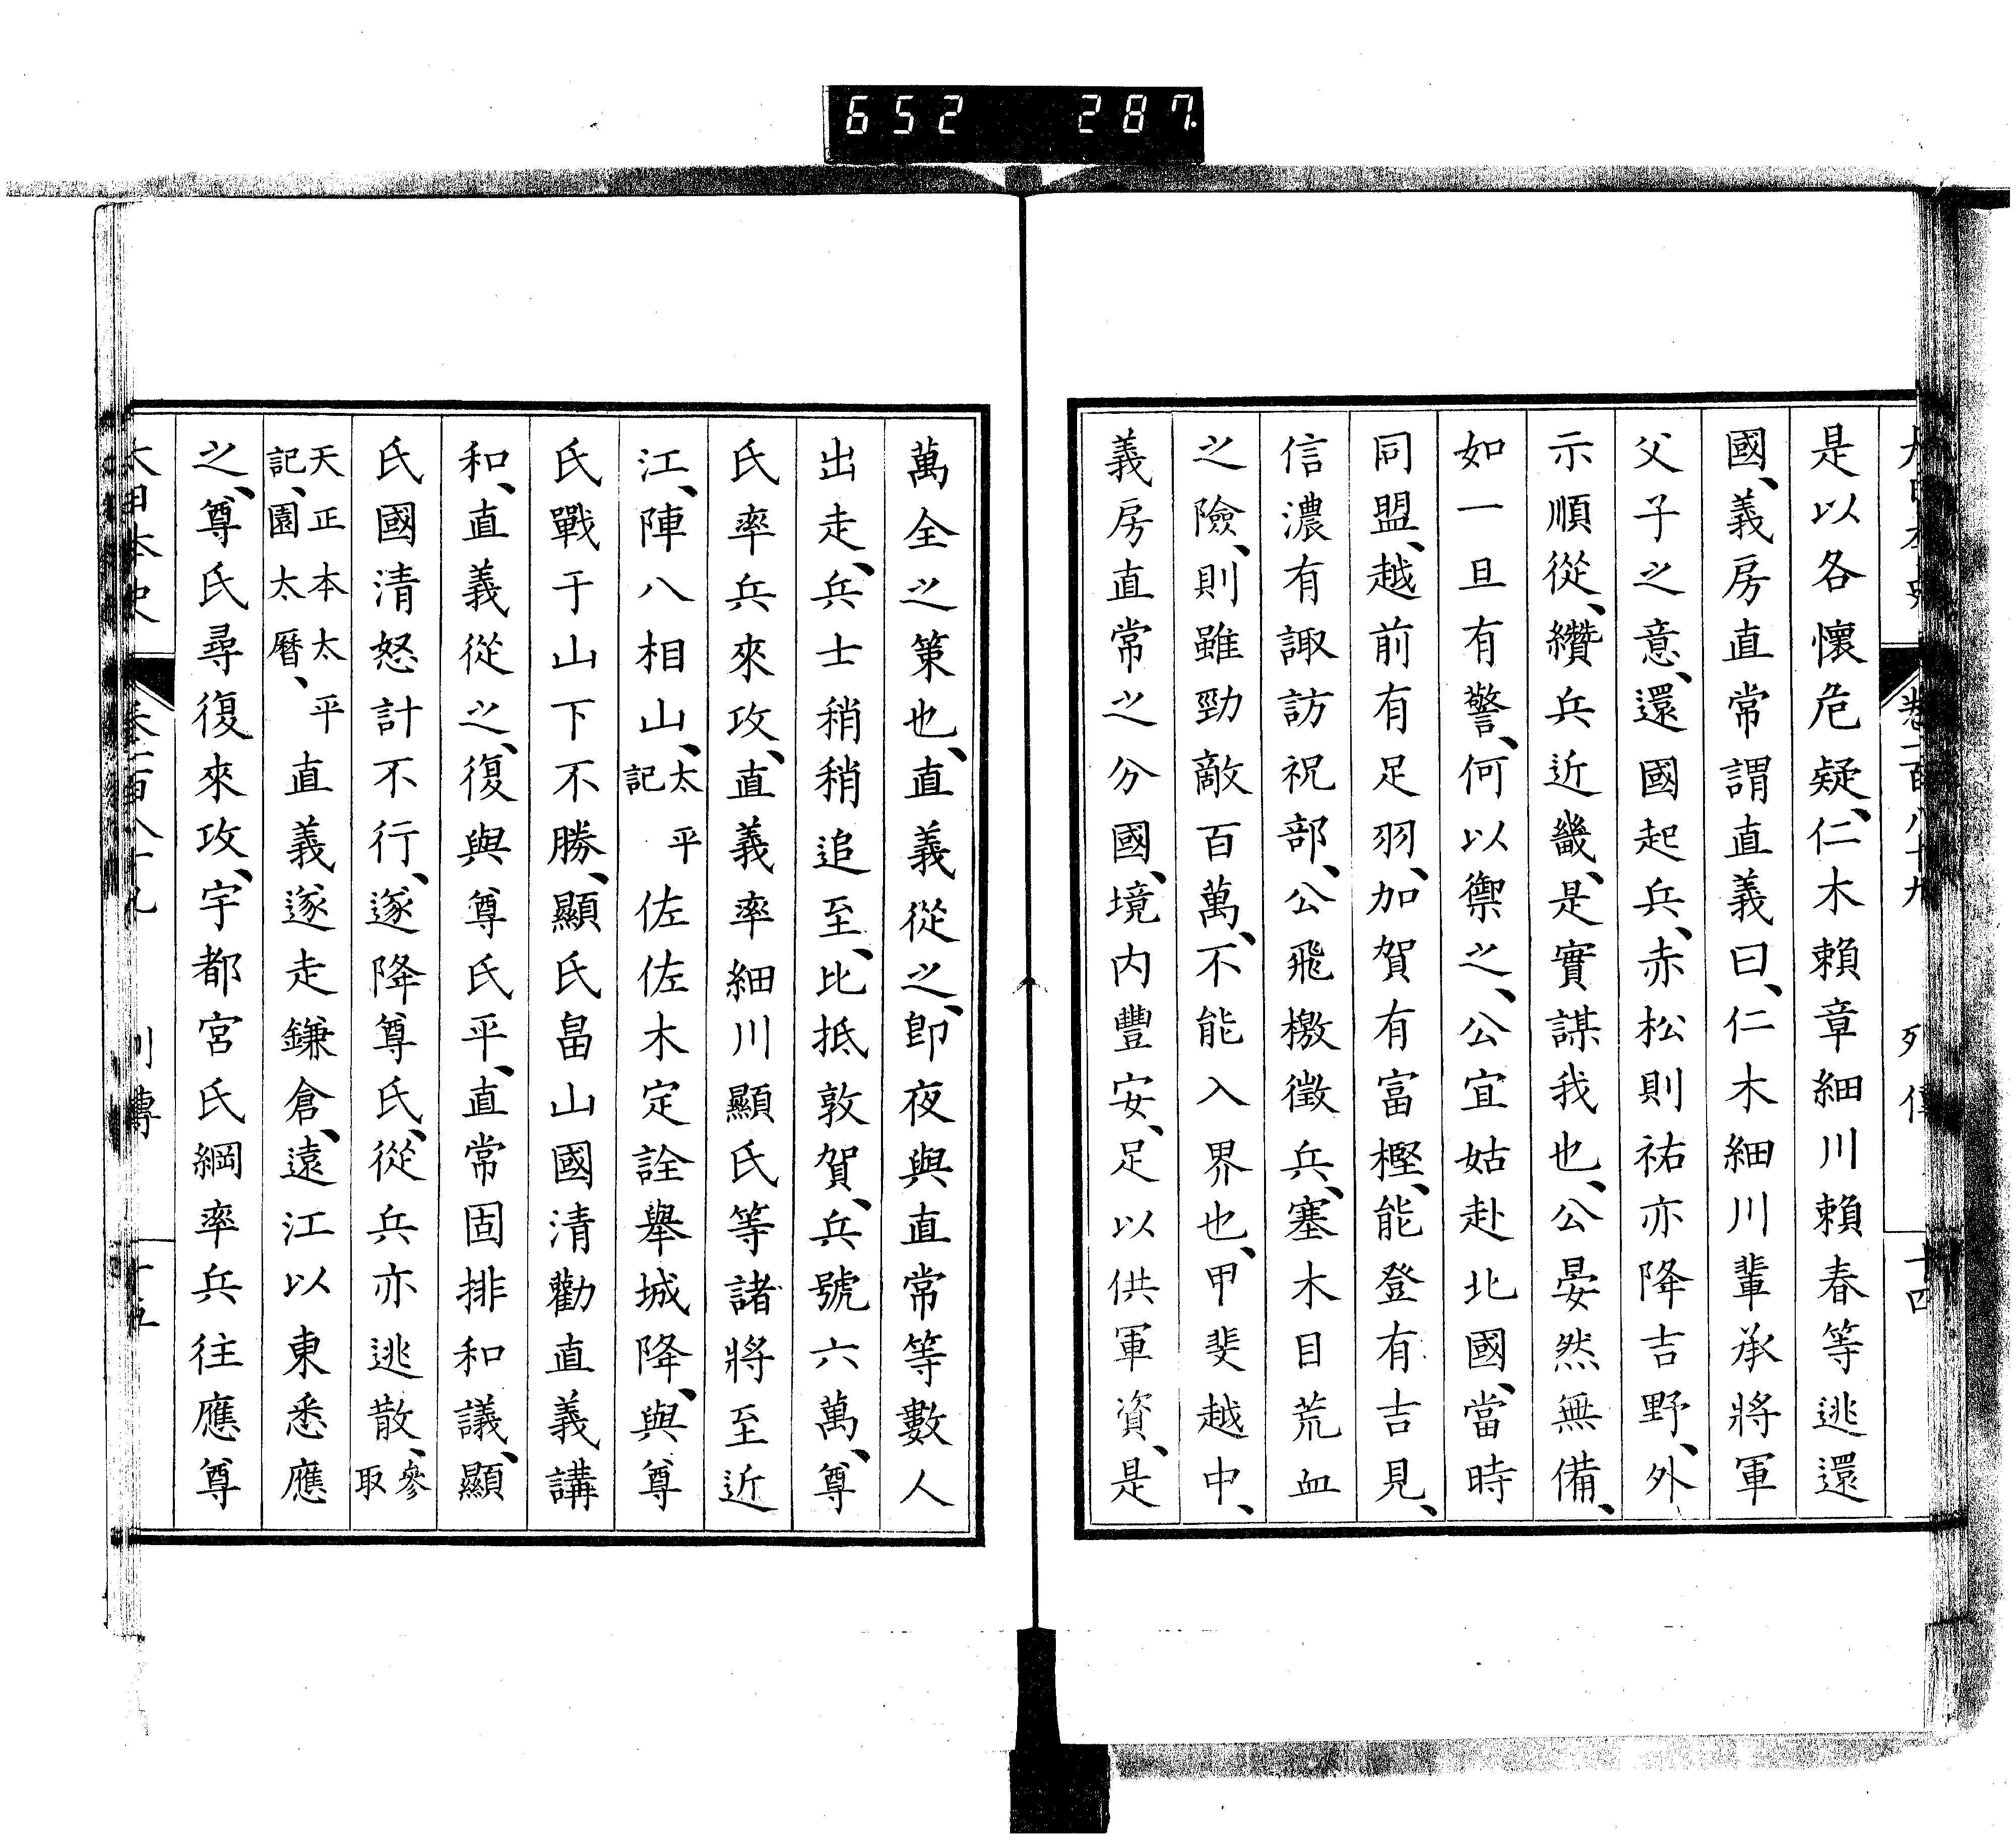 652 287
大日本史 卷一百八十九 列傳 十四
是以各懷危疑、仁木賴章細川賴春等逃還
國、義房直常謂直義曰、仁木細川輩承將軍
父子之意、還國起兵、赤松則祐亦降吉野、外
示順從、纘兵近畿、是實謀我也、公晏然無備、
如一旦有警、何以禦之、公宜姑赴北國、當時
同盟、越前有足羽、加賀有富樫、能登有吉見、
信濃有諏訪祝部、公飛檄徵兵、塞木目荒血
之險、則雖勁敵百萬、不能入界也、甲斐越中、
義房直常之分國、境內豐安、足以供軍資、是
萬全之策也、直義從之、卽夜與直常等數人
出走、兵士稍稍追至、比抵敦賀、兵號六萬、尊
氏率兵來攻、直義率細川顯氏等諸將至近
江、陣八相山、太平記佐佐木定詮舉城降、與尊
氏戰于山下不勝、顯氏畠山國清勸直義講
和、直義從之、復與尊氏平、直常固排和議、顯
氏國清怒計不行、遂降尊氏、從兵亦逃散、參取
天正本太平記、園太曆、直義遂走鎌倉、遠江以東悉應
之、尊氏尋復來攻、宇都宮氏綱率兵往應尊
大日本史 卷一百八十九 列傳 十五